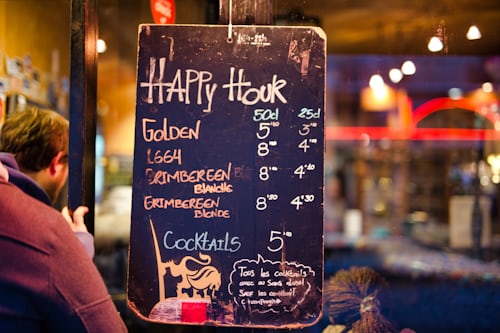 Happy Hour
50cl 25cl
Golden 5.⁻ 3.⁵⁰
1664 8.⁻ 4.⁵⁰
Grimbereen Blanche 8.⁻ 4.⁵⁰
Grimbereen Blonde 8.⁵⁰ 4.⁵⁰
Cocktails 5.⁻
Tous les cocktails
avec ou sans alcool
Sauf les